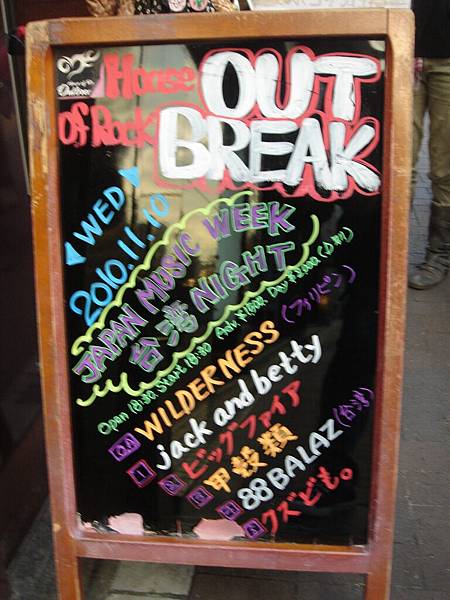 House of Rock
OUT BREAK
◀WED▶
2010.11.10
JAPAN MUSIC WEEK
台湾 NIGHT
Open 18:30. Start 18:30 Adv. ¥1800. Day ¥2,000. (D別)
OA WILDERNESS (フィリピン)
1 jack and betty
2 ビッグファイア
3 甲殻類
4 88BALAZ (台湾)
5 クズども。